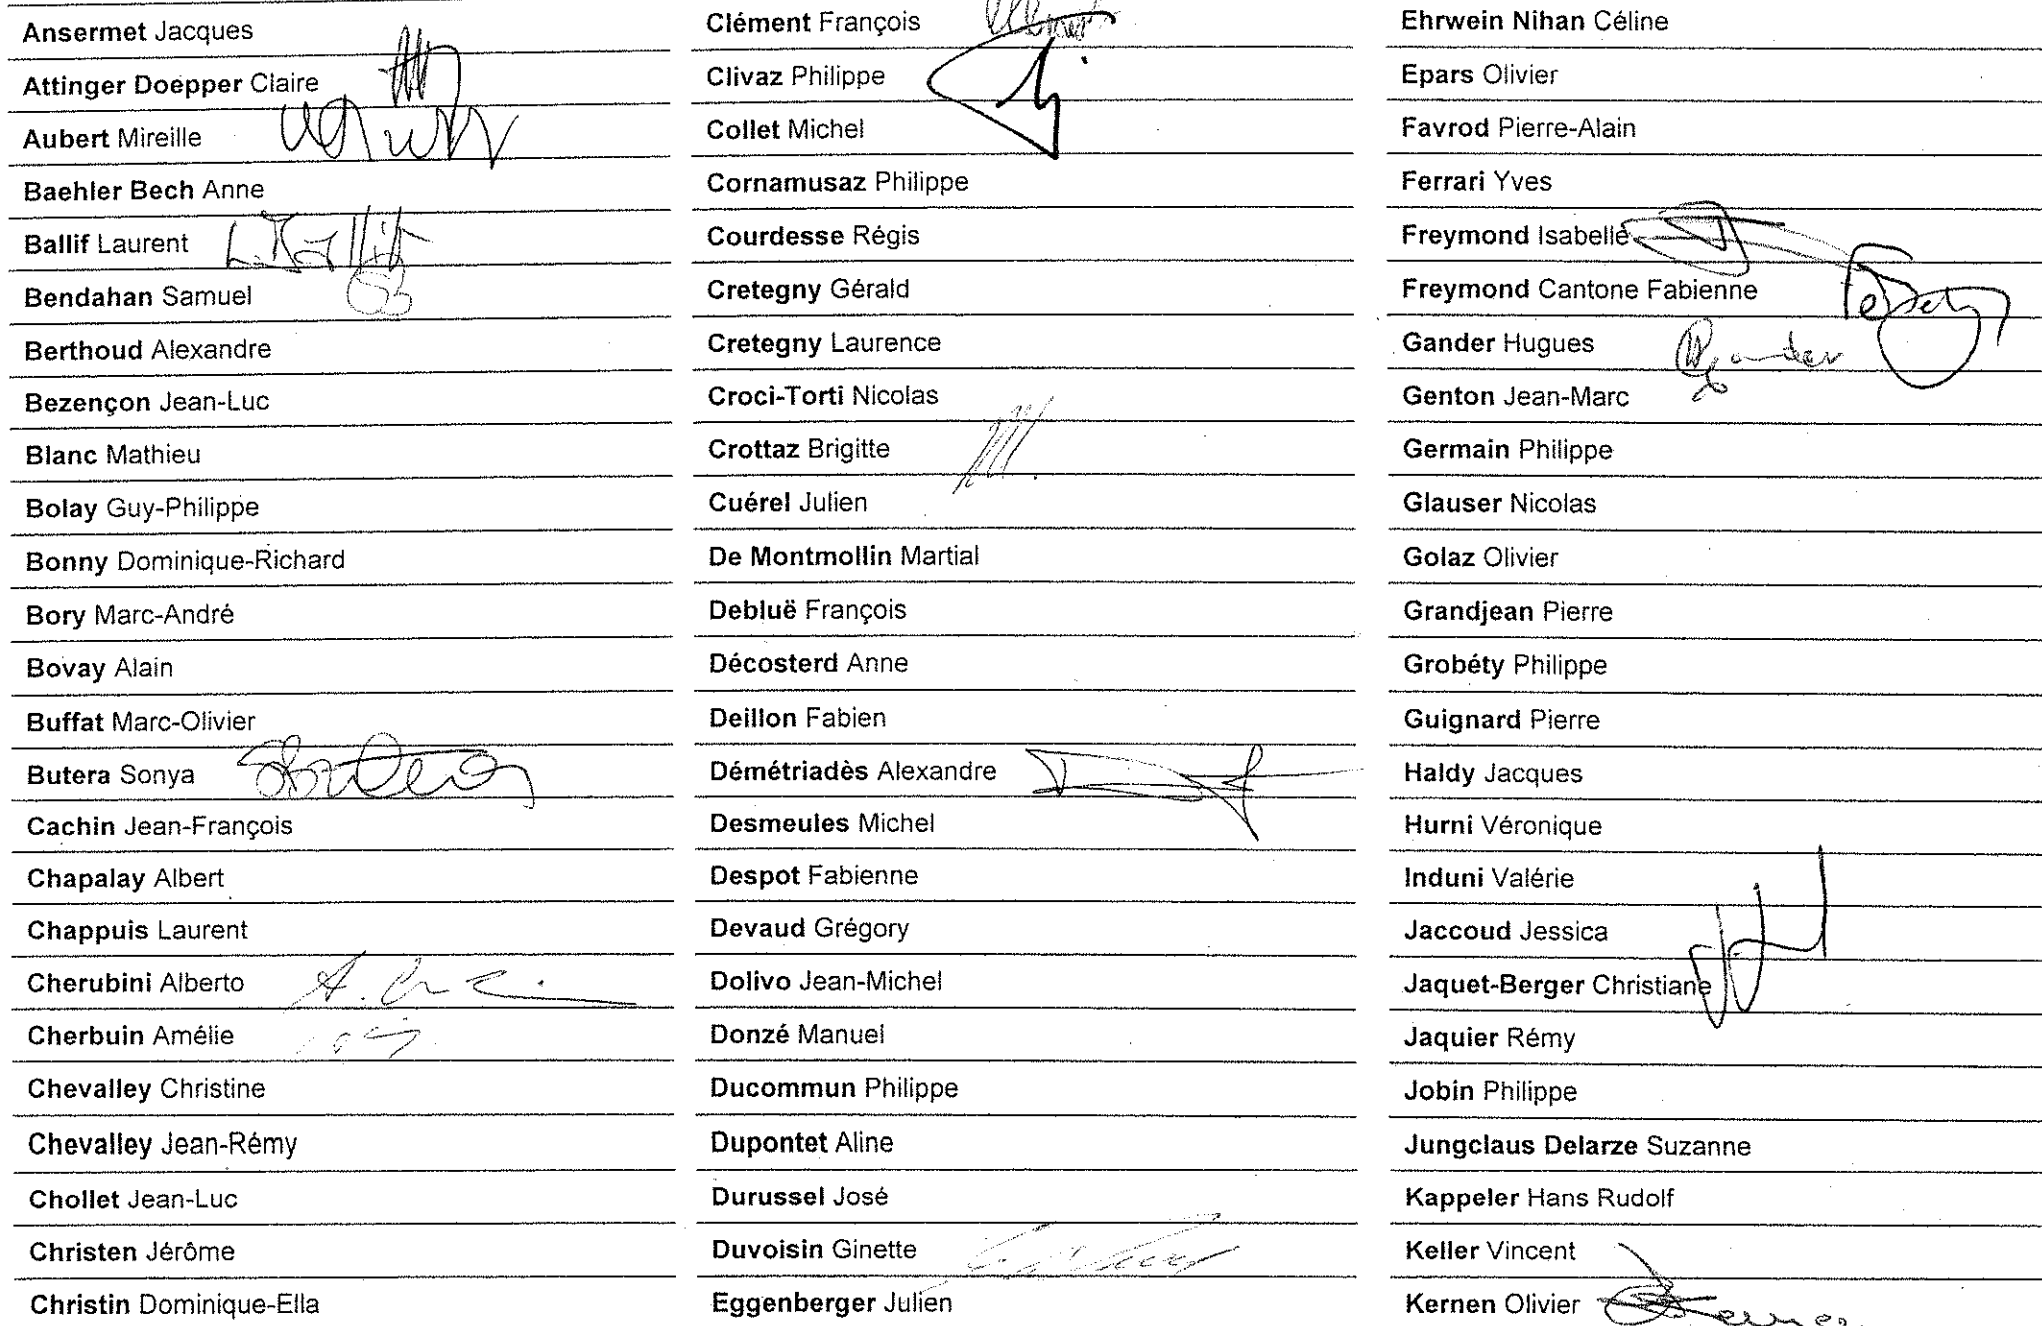 Ansermet Jacques
Attinger Doepper Claire
Aubert Mireille
Baehler Bech Anne
Ballif Laurent L. Ballif
Bendahan Samuel
Berthoud Alexandre
Bezençon Jean-Luc
Blanc Mathieu
Bolay Guy-Philippe
Bonny Dominique-Richard
Bory Marc-André
Bovay Alain
Buffat Marc-Olivier
Butera Sonya
Cachin Jean-François
Chapalay Albert
Chappuis Laurent
Cherubini Alberto
Cherbuin Amélie
Chevalley Christine
Chevalley Jean-Rémy
Chollet Jean-Luc
Christen Jérôme
Christin Dominique-Ella
Clément François
Clivaz Philippe
Collet Michel
Cornamusaz Philippe
Courdesse Régis
Cretegny Gérald
Cretegny Laurence
Croci-Torti Nicolas
Crottaz Brigitte
Cuérel Julien
De Montmollin Martial
Debluë François
Décosterd Anne
Deillon Fabien
Démétriadès Alexandre
Desmeules Michel
Despot Fabienne
Devaud Grégory
Dolivo Jean-Michel
Donzé Manuel
Ducommun Philippe
Dupontet Aline
Durussel José
Duvoisin Ginette
Eggenberger Julien
Ehrwein Nihan Céline
Epars Olivier
Favrod Pierre-Alain
Ferrari Yves
Freymond Isabelle
Freymond Cantone Fabienne
Gander Hugues
Genton Jean-Marc
Germain Philippe
Glauser Nicolas
Golaz Olivier
Grandjean Pierre
Grobéty Philippe
Guignard Pierre
Haldy Jacques
Hurni Véronique
Induni Valérie
Jaccoud Jessica
Jaquet-Berger Christiane
Jaquier Rémy
Jobin Philippe
Jungclaus Delarze Suzanne
Kappeler Hans Rudolf
Keller Vincent
Kernen Olivier